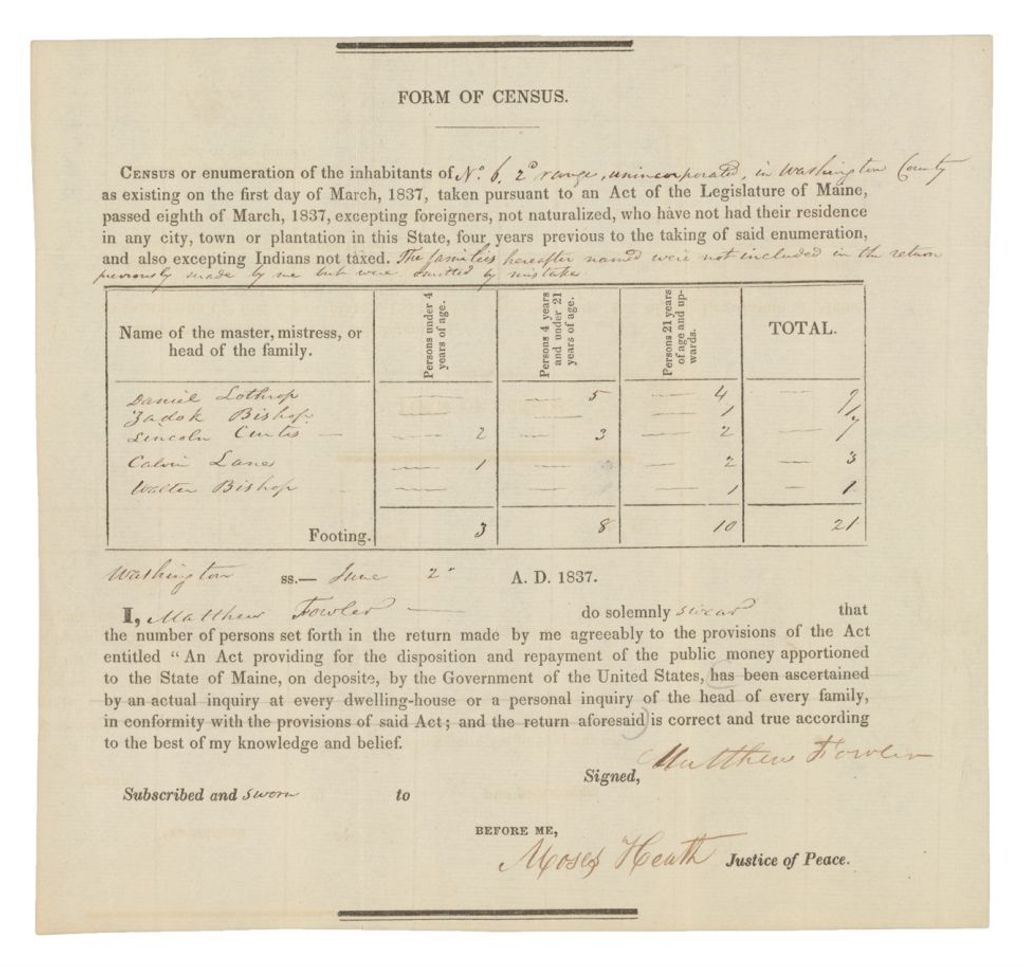 FORM OF CENSUS.
CENSUS or enumeration of the inhabitants of No. 6, 2d range, unincorporated, in Washington County
as existing on the first day of March, 1837, taken pursuant to an Act of the Legislature of Maine,
passed eighth of March, 1837, excepting foreigners, not naturalized, who have not had their residence
in any city, town or plantation in this State, four years previous to the taking of said enumeration,
and also excepting Indians not taxed. The families hereafter named were not included in the return
previously made by me but were omitted by mistake
Name of the master, mistress, or head of the family. Persons under 4 years of age. Persons 4 years and under 21 years of age. Persons 21 years of age and up-wards. TOTAL.
Daniel Lothrop — 5 — 4 — 9
Zadok Bishop — — 1 — 1
Lincoln Curtis — — 2 — 3 — 2 — 7
Calvin Lane — 1 — — 2 — 3
Walter Bishop — — — 1 — 1
Footing. 3 8 10 21
Washington ss.— June 2d A. D. 1837.
I, Matthew Fowler — do solemnly swear that
the number of persons set forth in the return made by me agreeably to the provisions of the Act
entitled "An Act providing for the disposition and repayment of the public money apportioned
to the State of Maine, on deposite, by the Government of the United States, (has been ascertained
by an actual inquiry at every dwelling-house or a personal inquiry of the head of every family,
in conformity with the provisions of said Act; and the return aforesaid) is correct and true according
to the best of my knowledge and belief.
Signed, Matthew Fowler
Subscribed and sworn to
BEFORE ME,
Moses Heath Justice of Peace.